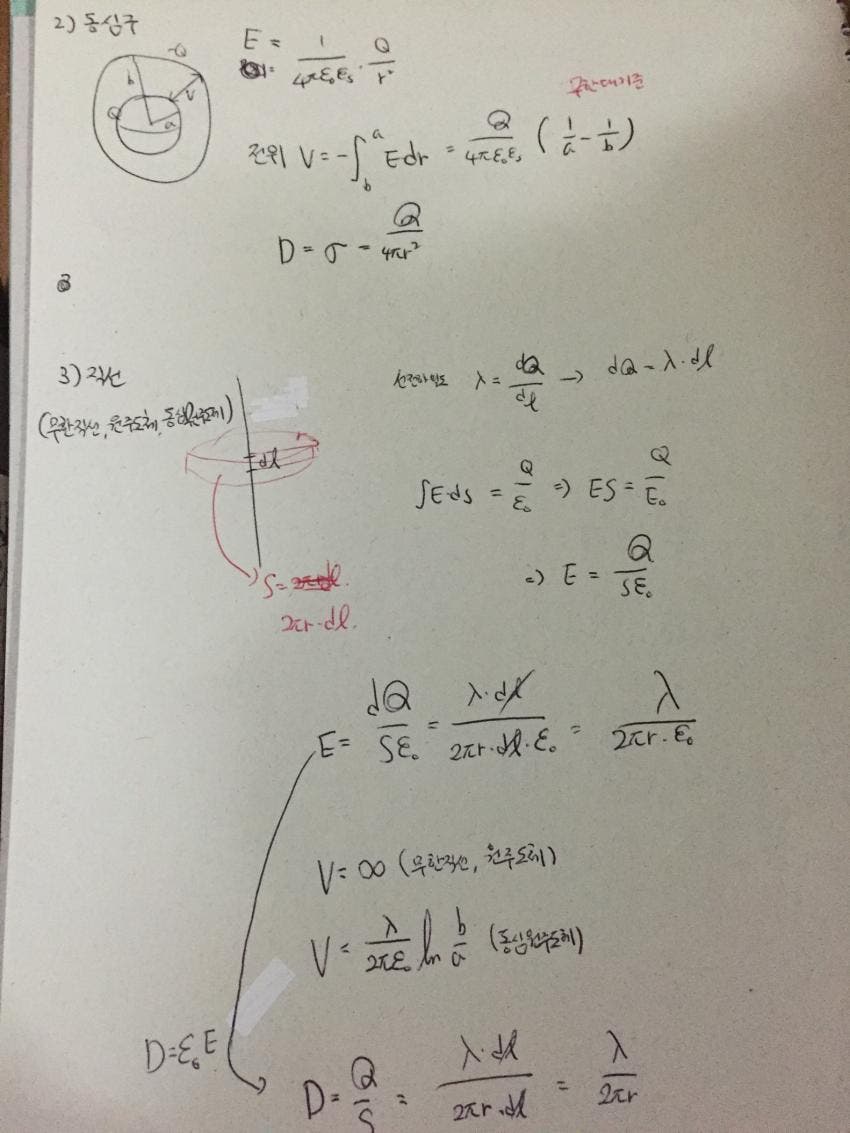 2) 동심구
-Q
b
V
Q
a
E = 1/4πε₀εs · Q/r²
무한대기준
전위 V = -∫_b^a E dr = Q/4πε₀εs (1/a - 1/b)
D = σ = Q/4πr²
3) 직선
(무한직선, 원주도체, 동심원주도체)
r
dl
S =
2πr·dl.
선전하밀도 λ = dQ/dl → dQ = λ·dl
∫E·ds = Q/ε₀ ⇒ ES = Q/ε₀
⇒ E = Q/Sε₀
E = dQ/Sε₀ = λ·dl/2πr·dl·ε₀ = λ/2πr·ε₀
V = ∞ (무한직선, 원주도체)
V = λ/2πε₀ ln b/a (동심원주도체)
D = ε₀E
D = Q/S = λ·dl/2πr·dl = λ/2πr